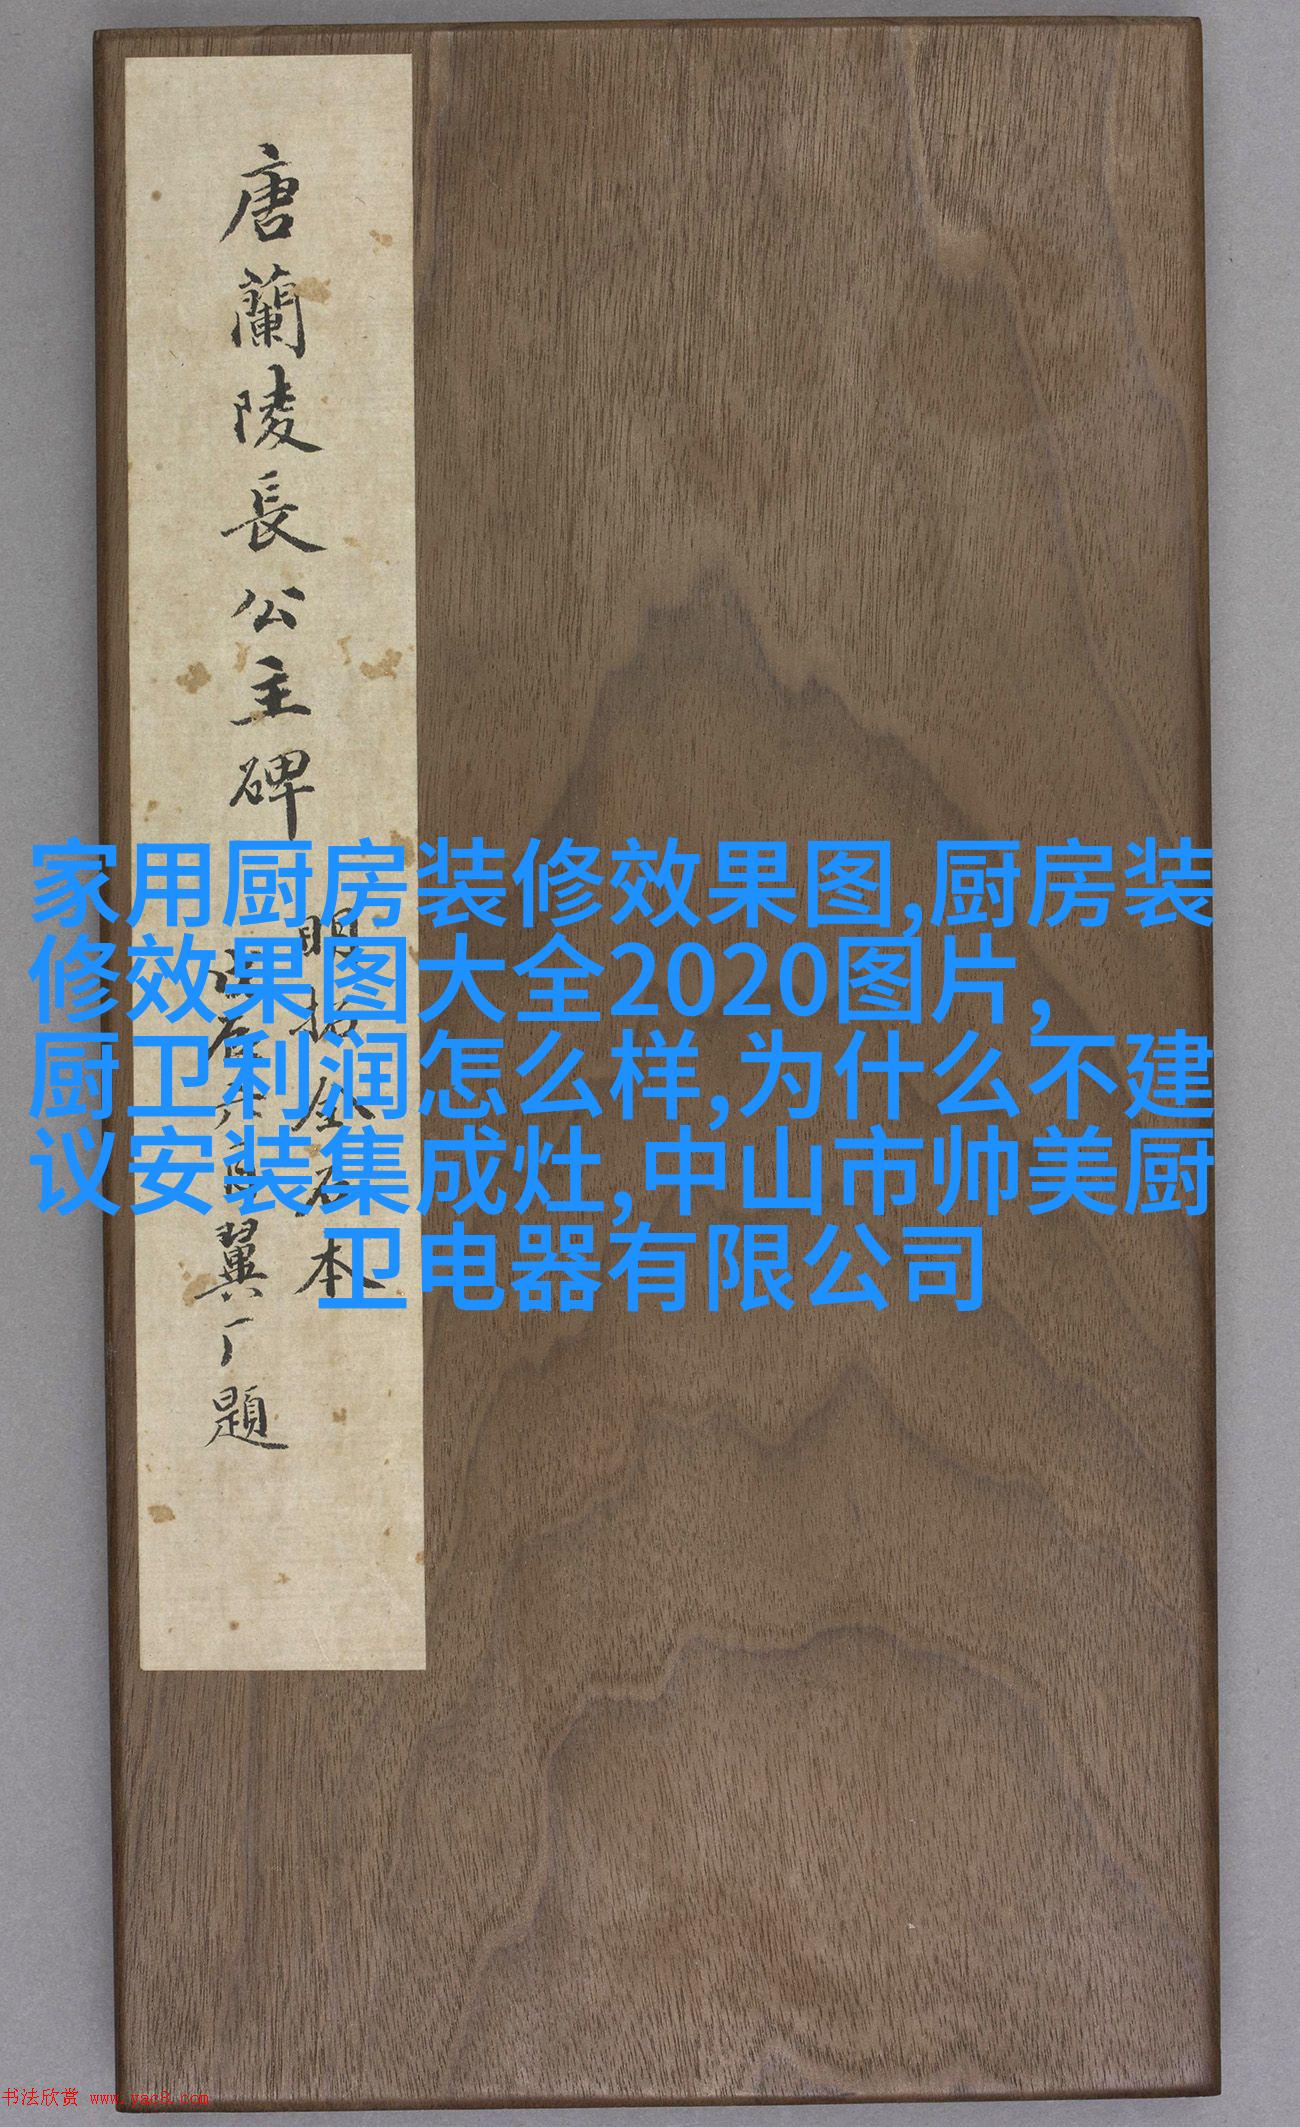 唐蘭陵長公主碑
明拓全石本
翼厂題
家用厨房装修效果图,厨房装
修效果图大全2020图片,
厨卫利润怎么样,为什么不建
议安装集成灶,中山市帅美厨
卫电器有限公司
书法欣赏 www.yac8.com